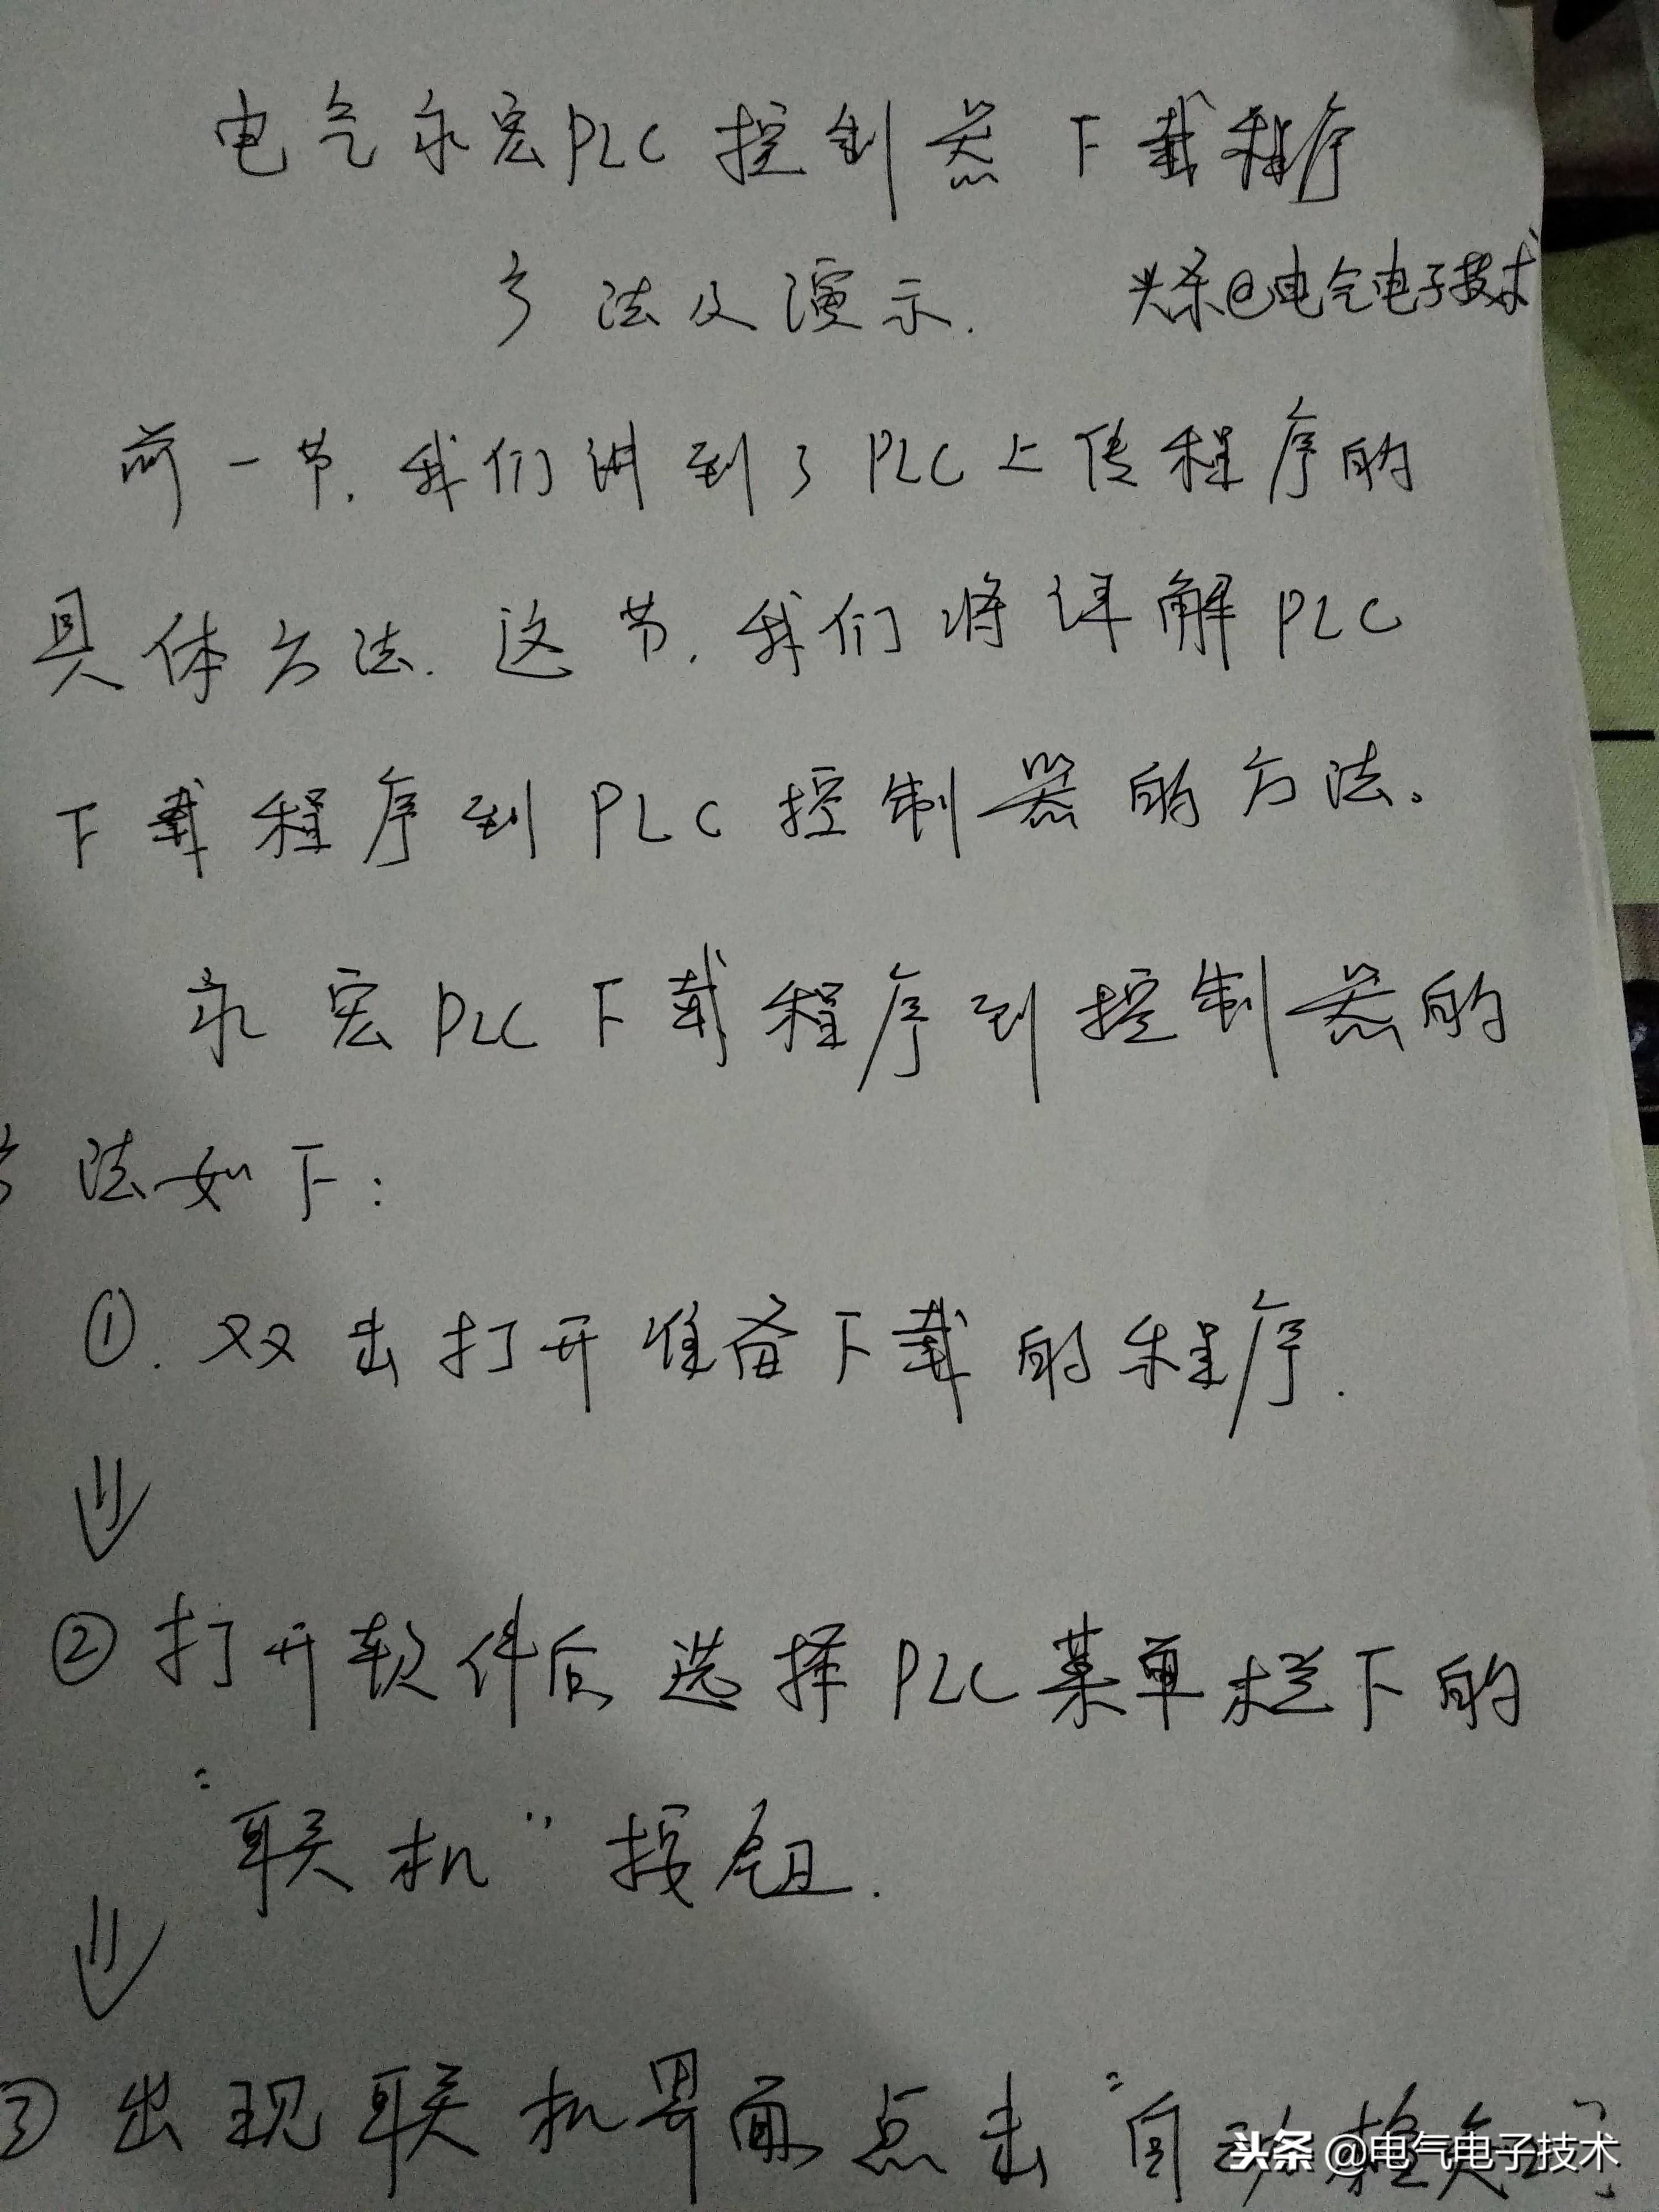 电气永宏PLC控制器下载程序
方法及演示. 头条@电气电子技术
前一节.我们讲到了PLC上传程序的
具体方法.这节.我们将详解PLC
下载程序到PLC控制器的方法。
永宏PLC下载程序到控制器的
方法如下:
①.双击打开准备下载的程序.
②打开软件后选择PLC菜单栏下的
"联机"按钮.
③出现联机界面点击"自动检
头条 @电气电子技术